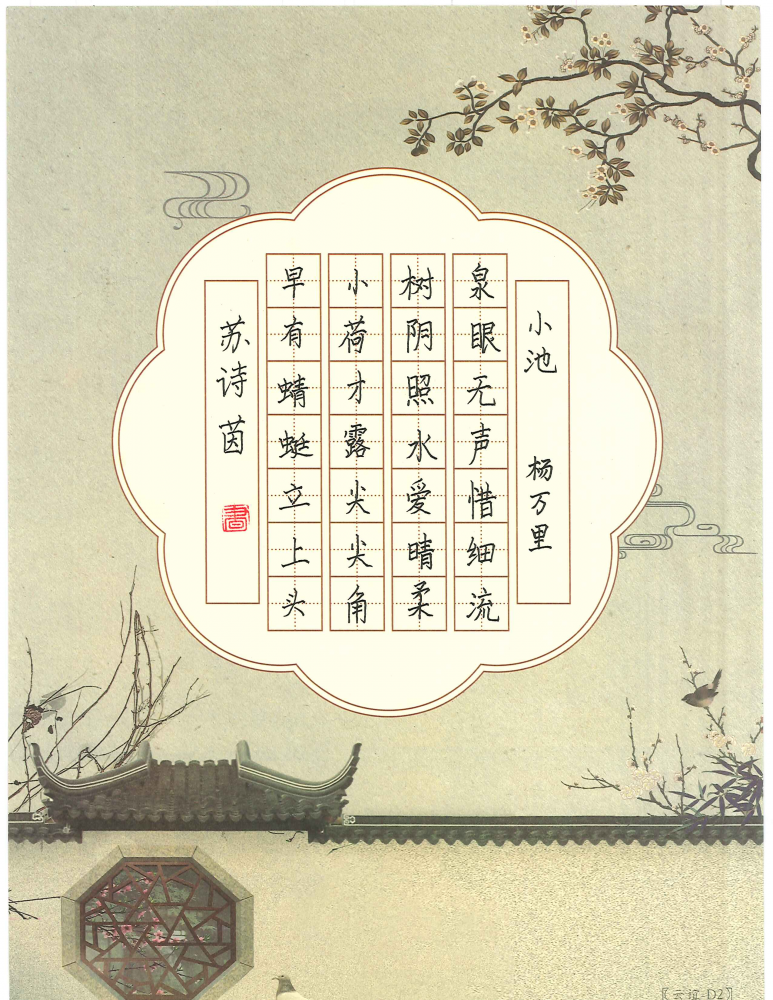 小池 杨万里
泉眼无声惜细流
树阴照水爱晴柔
小荷才露尖尖角
早有蜻蜓立上头
苏诗茵
書